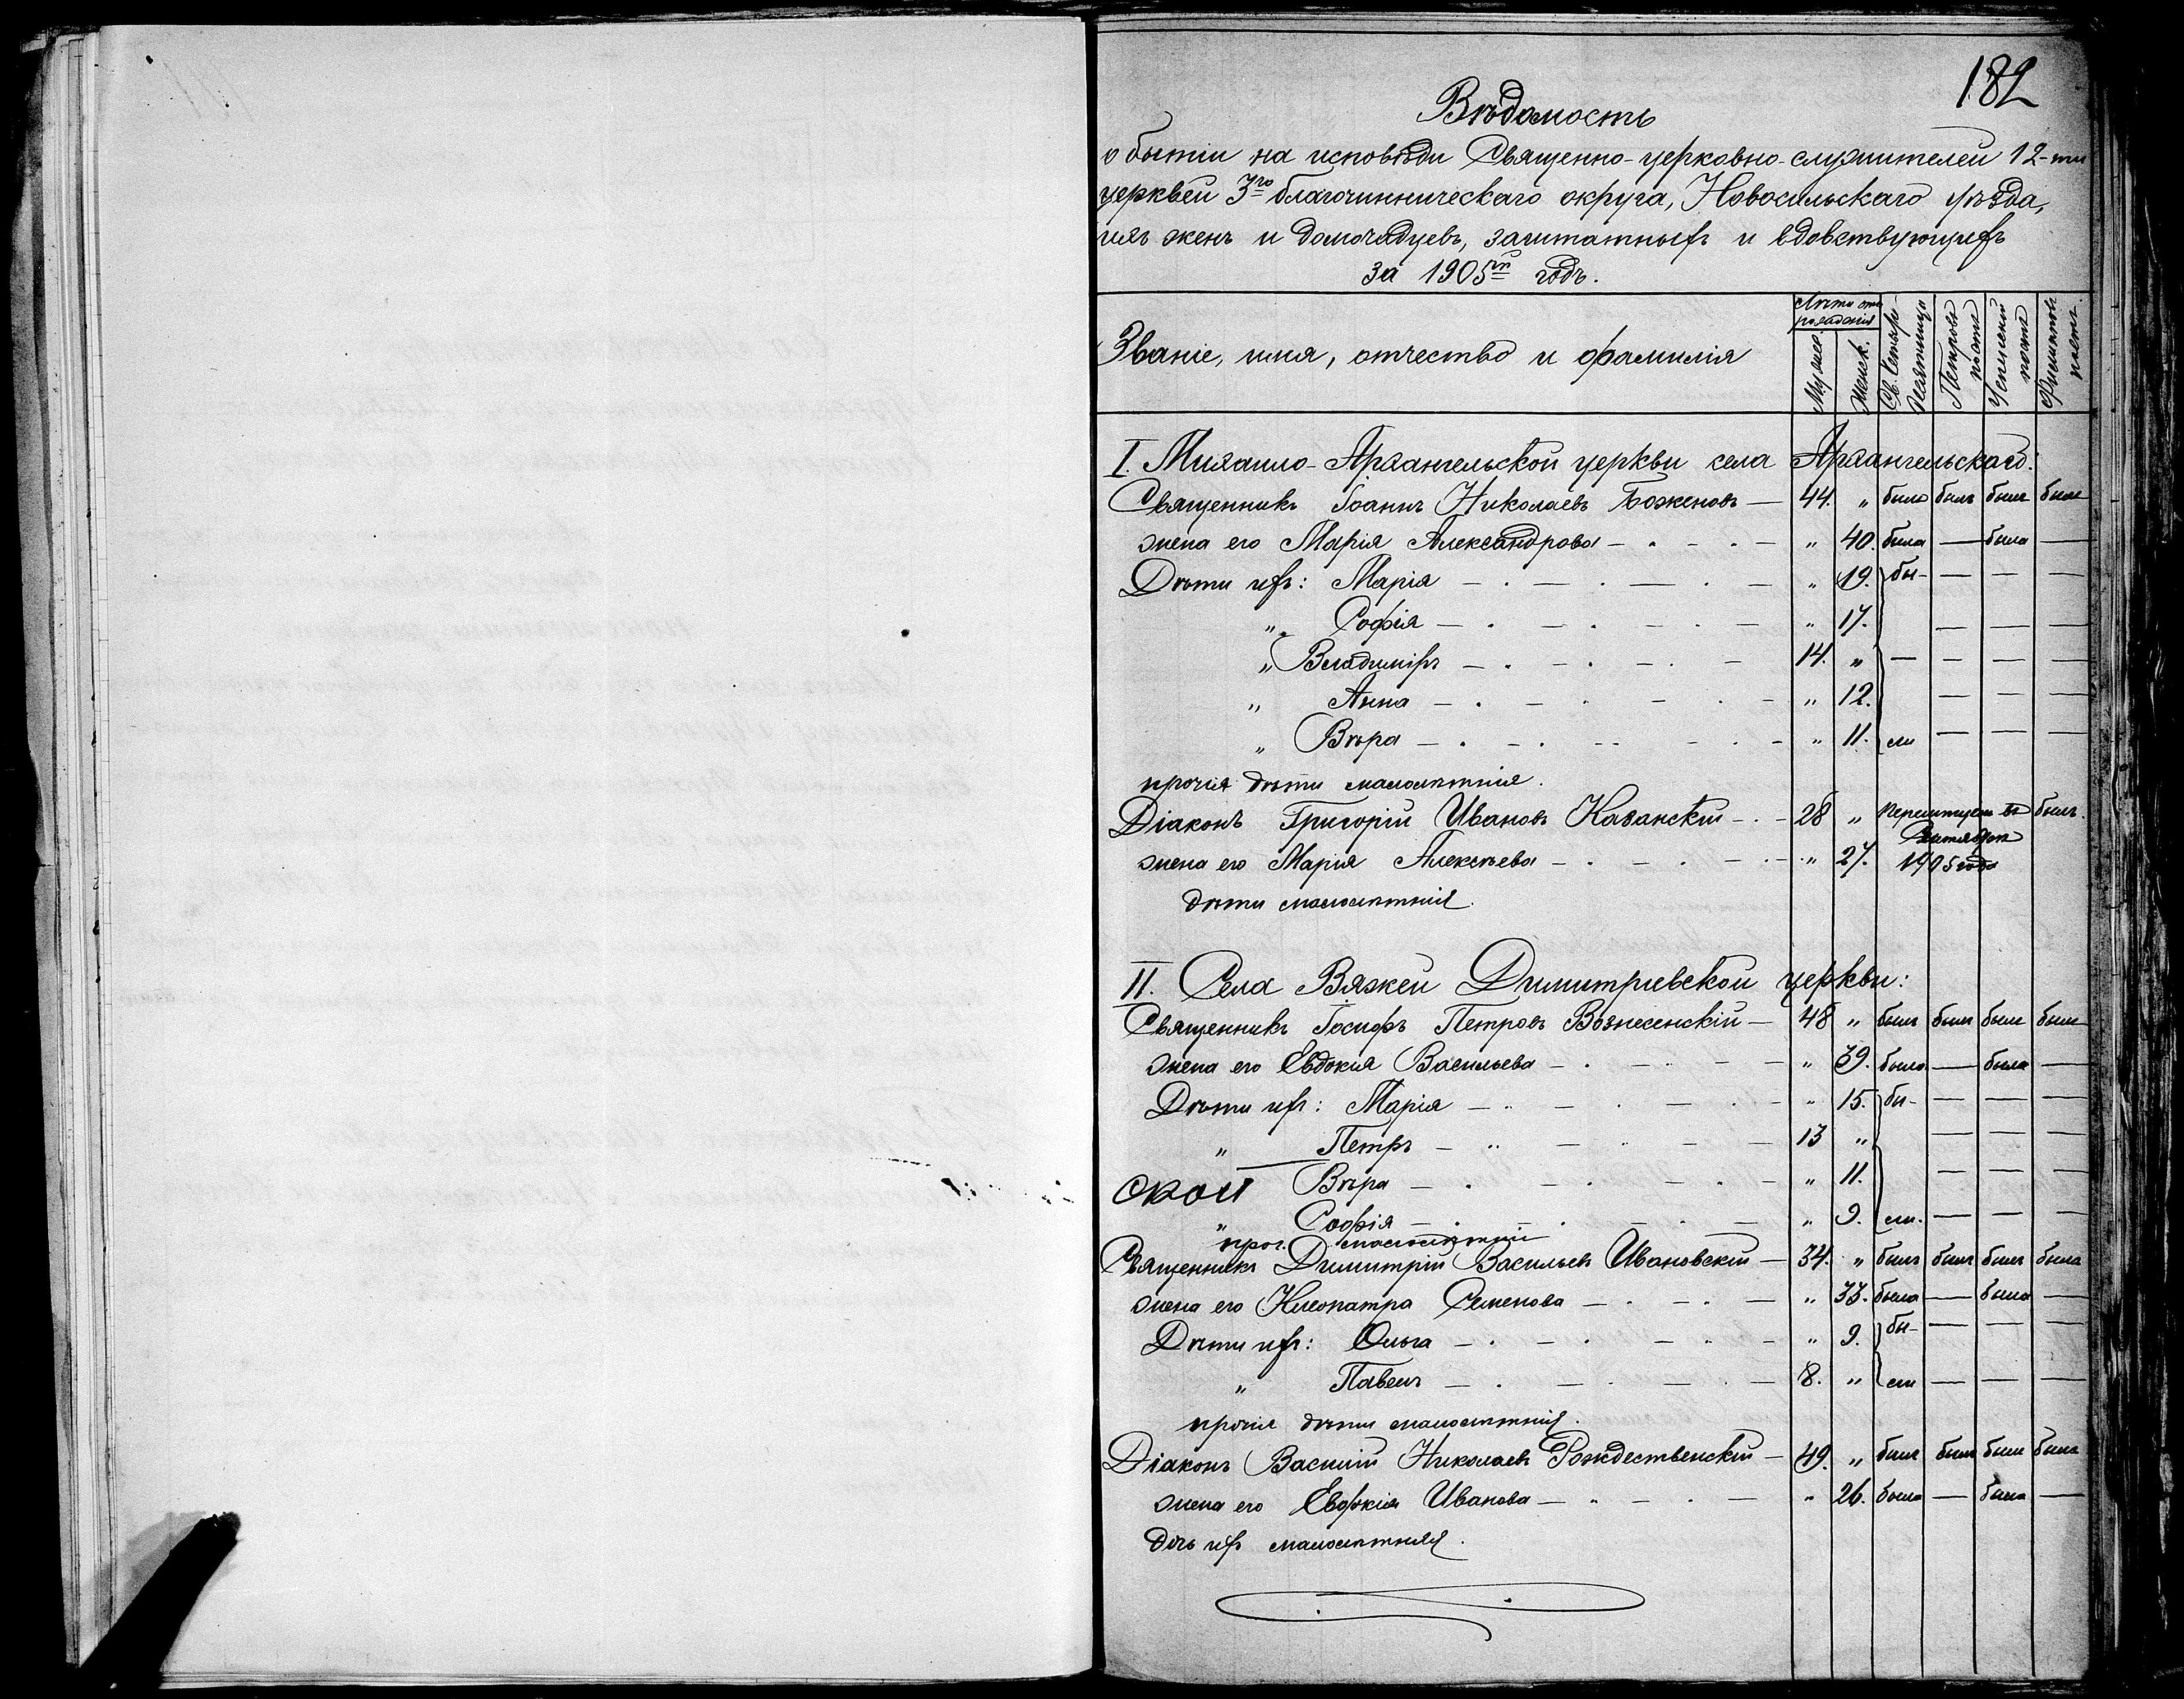 182
Вѣдомость
о бытіи на исповѣди Священно-церковно-служителей 12-ти
церквей 3го благочинническаго округа, Новосильскаго уѣзда,
ихъ женъ и домочадцевъ, заштатныхъ и вдовствующихъ
за 1905й годъ.
Званіе, имя, отчество и фамилія Лѣта отъ рожденія Мужес. Женск. Св. Четыре-десятница Петровъ постъ Успенскій постъ Филиповъ постъ.
I. Михаило-Архангельской церкви села Архангельскаго:
Священникъ Іоаннъ Николаевъ Боженовъ — 44. „ былъ былъ былъ былъ
жена его Марія Александрова — „ 40. была — была —
Дѣти ихъ: Марія — „ 19. бы- — — —
„ Софія — „ 17. — — —
„ Владиміръ — 14. „ — — — —
„ Анна — „ 12. — — —
„ Вѣра — „ 11. ли — — —
прочія дѣти малолѣтнія.
Діаконъ Григорій Ивановъ Казанскій — 28 „ былъ.
жена его Марія Алексѣева — „ 27. 1905 года
дѣти малолѣтнія.
II. Села Вяжей Димитріевской церкви:
Священникъ Іосифъ Петровъ Вознесенскій — 48 „ былъ былъ былъ былъ
жена его Евдокія Васильева — „ 39. была — была —
Дѣти ихъ: Марія — „ 15. бы- — — —
„ Петръ — 13 „ — — —
Вѣра — „ 11. — — —
„ Софія — „ 9. ли. — — —
проч. малолѣтніи
Священникъ Димитрій Васильевъ Ивановскій — 34. „ былъ былъ былъ былъ
жена его Клеопатра Семенова — „ 33. была — была —
Дѣти ихъ: Ольга — „ 9. бы- — — —
„ Павелъ — 8. „ ли — — —
прочія дѣти малолѣтнія.
Діаконъ Василій Николаевъ Рождественскій — 49. „ былъ былъ былъ былъ
жена его Евфимія Иванова — „ 26. была — была —
дочь ихъ малолѣтняя.